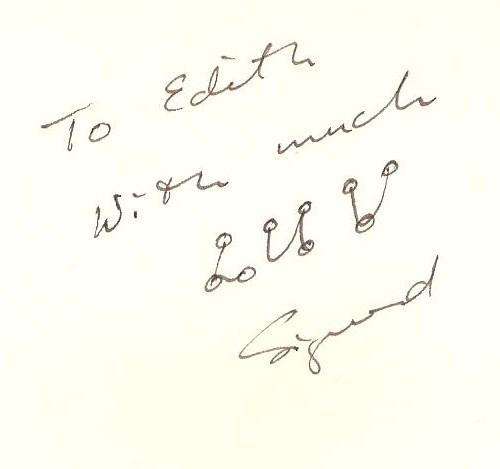 To Edith
With much
LUV
Sigurd